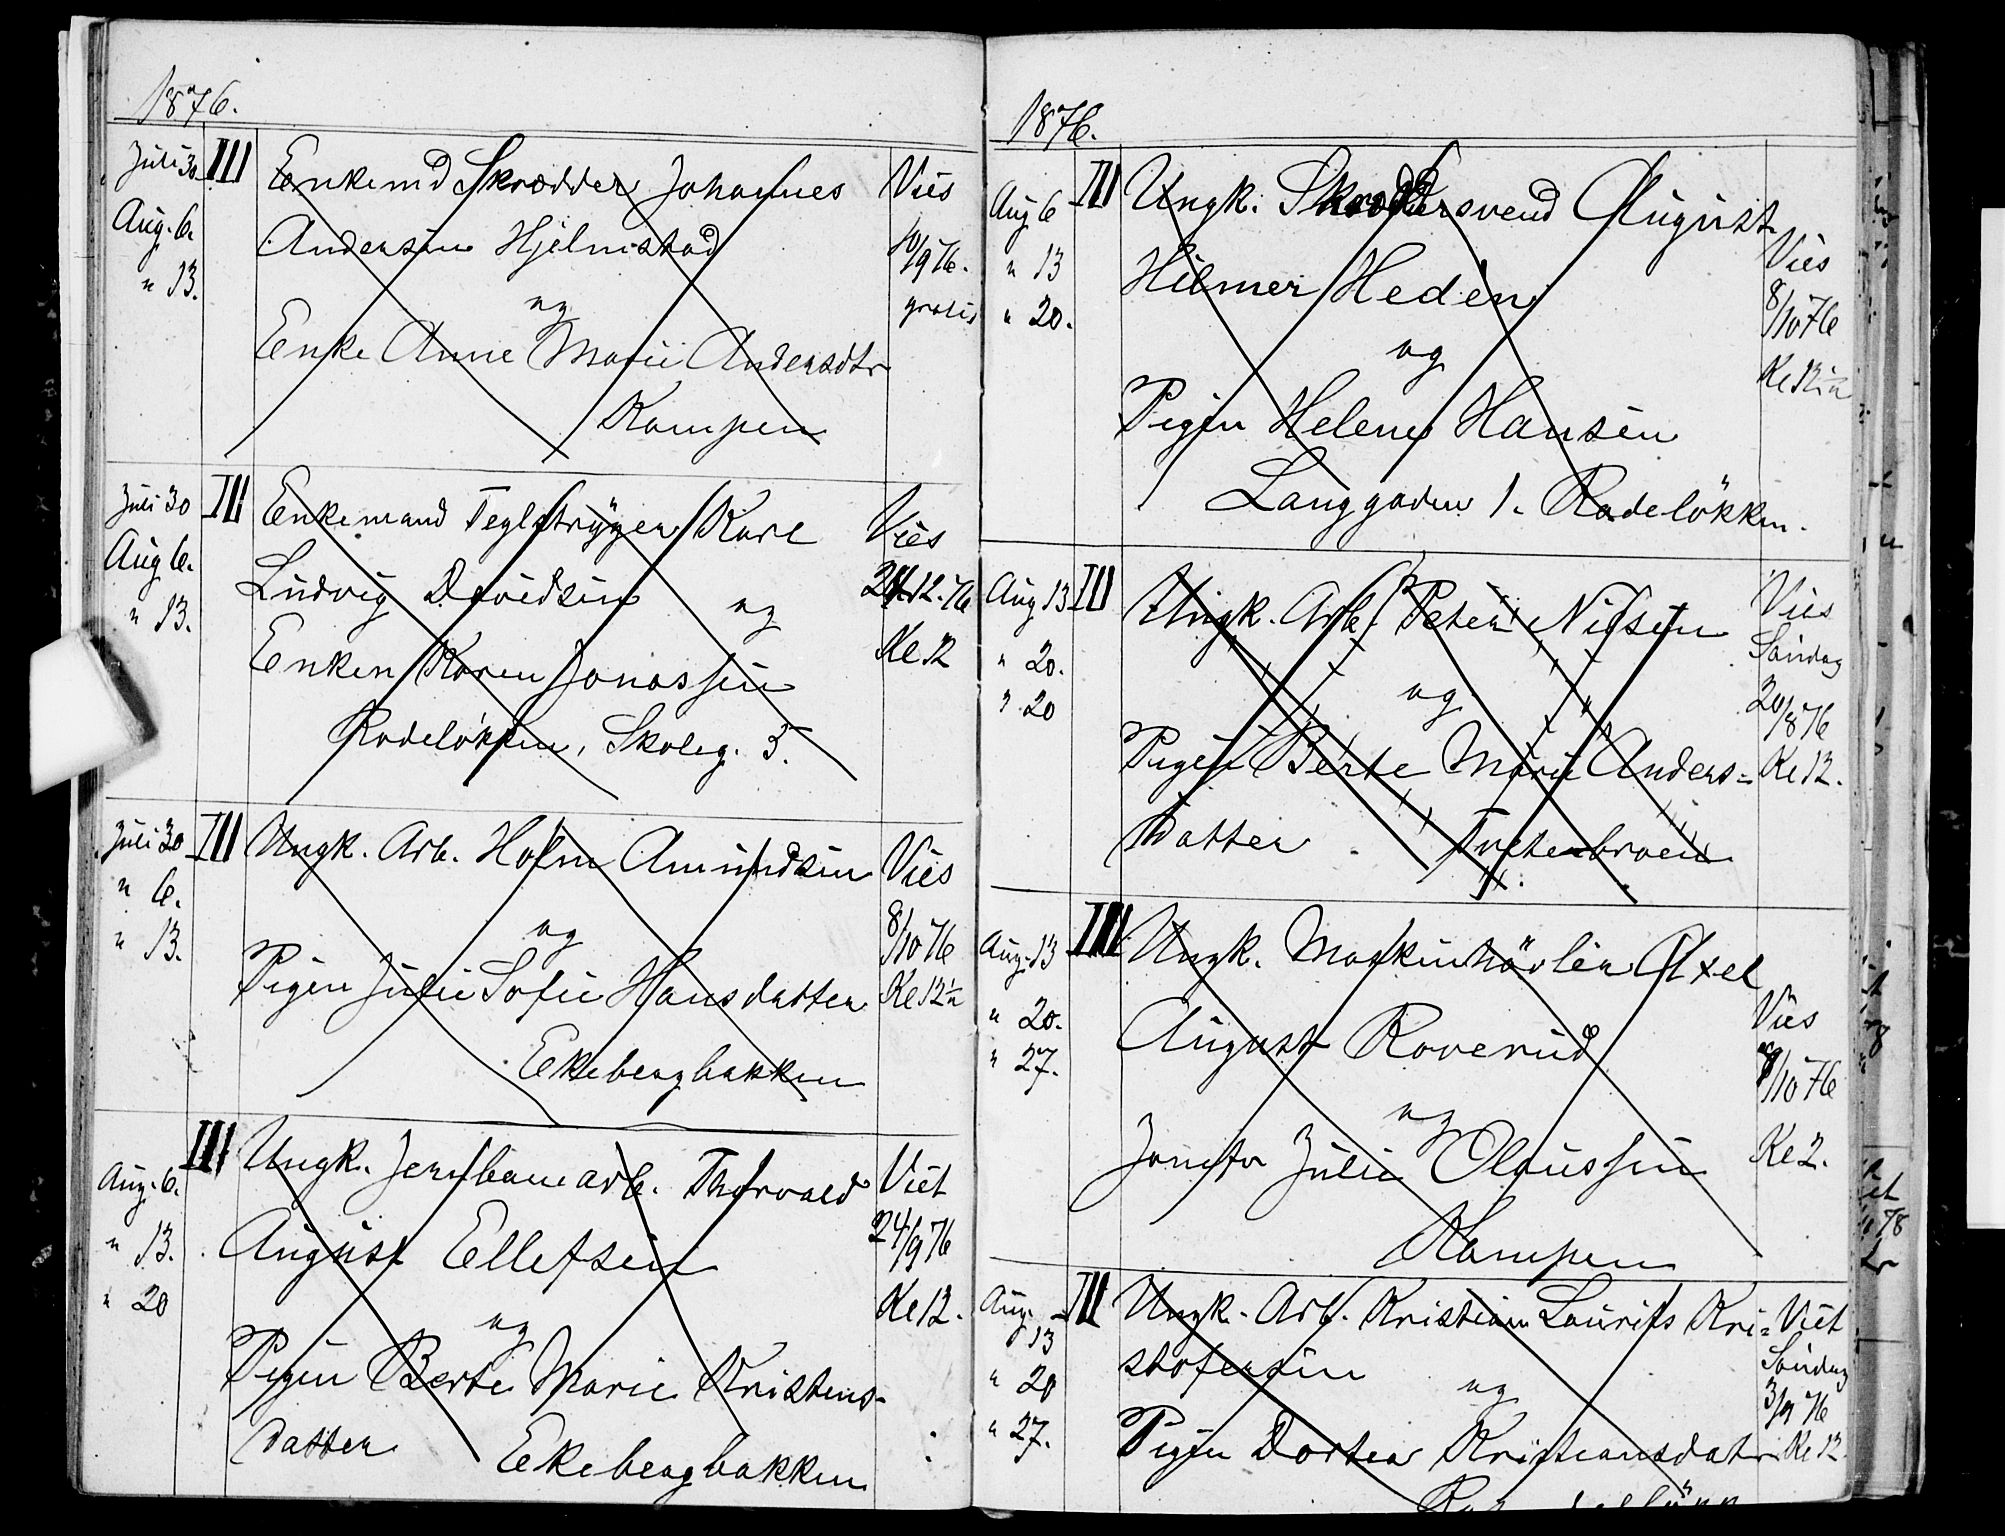 1876.
Juli 30 III Enkemd Skrædder Johannes Vies
Aug. 6. Andersen Hjelmstad 10/9 76.
" 13. og gratis
Enke Anne Marie Andersdtr
Kampen
Juli 30 III Enkemand Teglstryger Karl Vies
Aug 6. Ludvig Davidsen og 12. 76
" 13. Enken Karen Jonassen Kl 12
Rodeløkken, Skoleg. 5.
Juli 30 III Ungk. Arb. Holm Amundsen Vies
" 6. og 8/10 76
" 13. Pigen Julie Sofie Hansdatter Kl 12½
Ekebergbakken
Aug. 6. III Ungk. Jernbanearb. Thorvald Viet
" 13. August Ellefsen 24/9 76
" 20 og Kl 12.
Pigen Berte Marie Kristens-
datter Ekebergbakken
1876.
Aug 6 III Ungk. Skræddersvend August
" 13 Hilmer Heden Vies
" 20. og 8/10 76
Pigen Helene Hansen Kl 12½
Langgaden 1. Rodeløkken.
Aug 13 III Ungk. Arb. Peter Nilsen Vies
" 20. og Søndag
" 20 Pigen Berte Marie Anders= 20/8 76
datter Kl 12.
Aug. 13 III Ungk. Maskinhøvler Axel
" 20. August Roverud Vies
" 27. og /10 76
Jomfr Julie Olaussen Kl 2.
Kampen
Aug. 13 III Ungk. Arb. Kristian Laurits Kri= Viet
" 20 stofersen og Søndag
" 27. Pigen Dortea Kristiansdatr 3/9 76
Kl 12